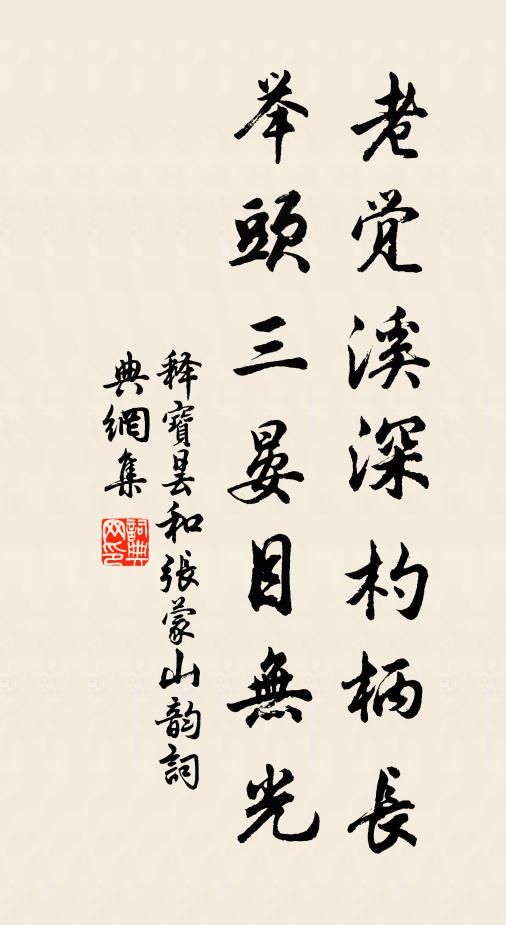 老觉溪深杓柄長
举頭三晏目無光
释寶昙和張蒙山韵詞
典網集
詞典
网印